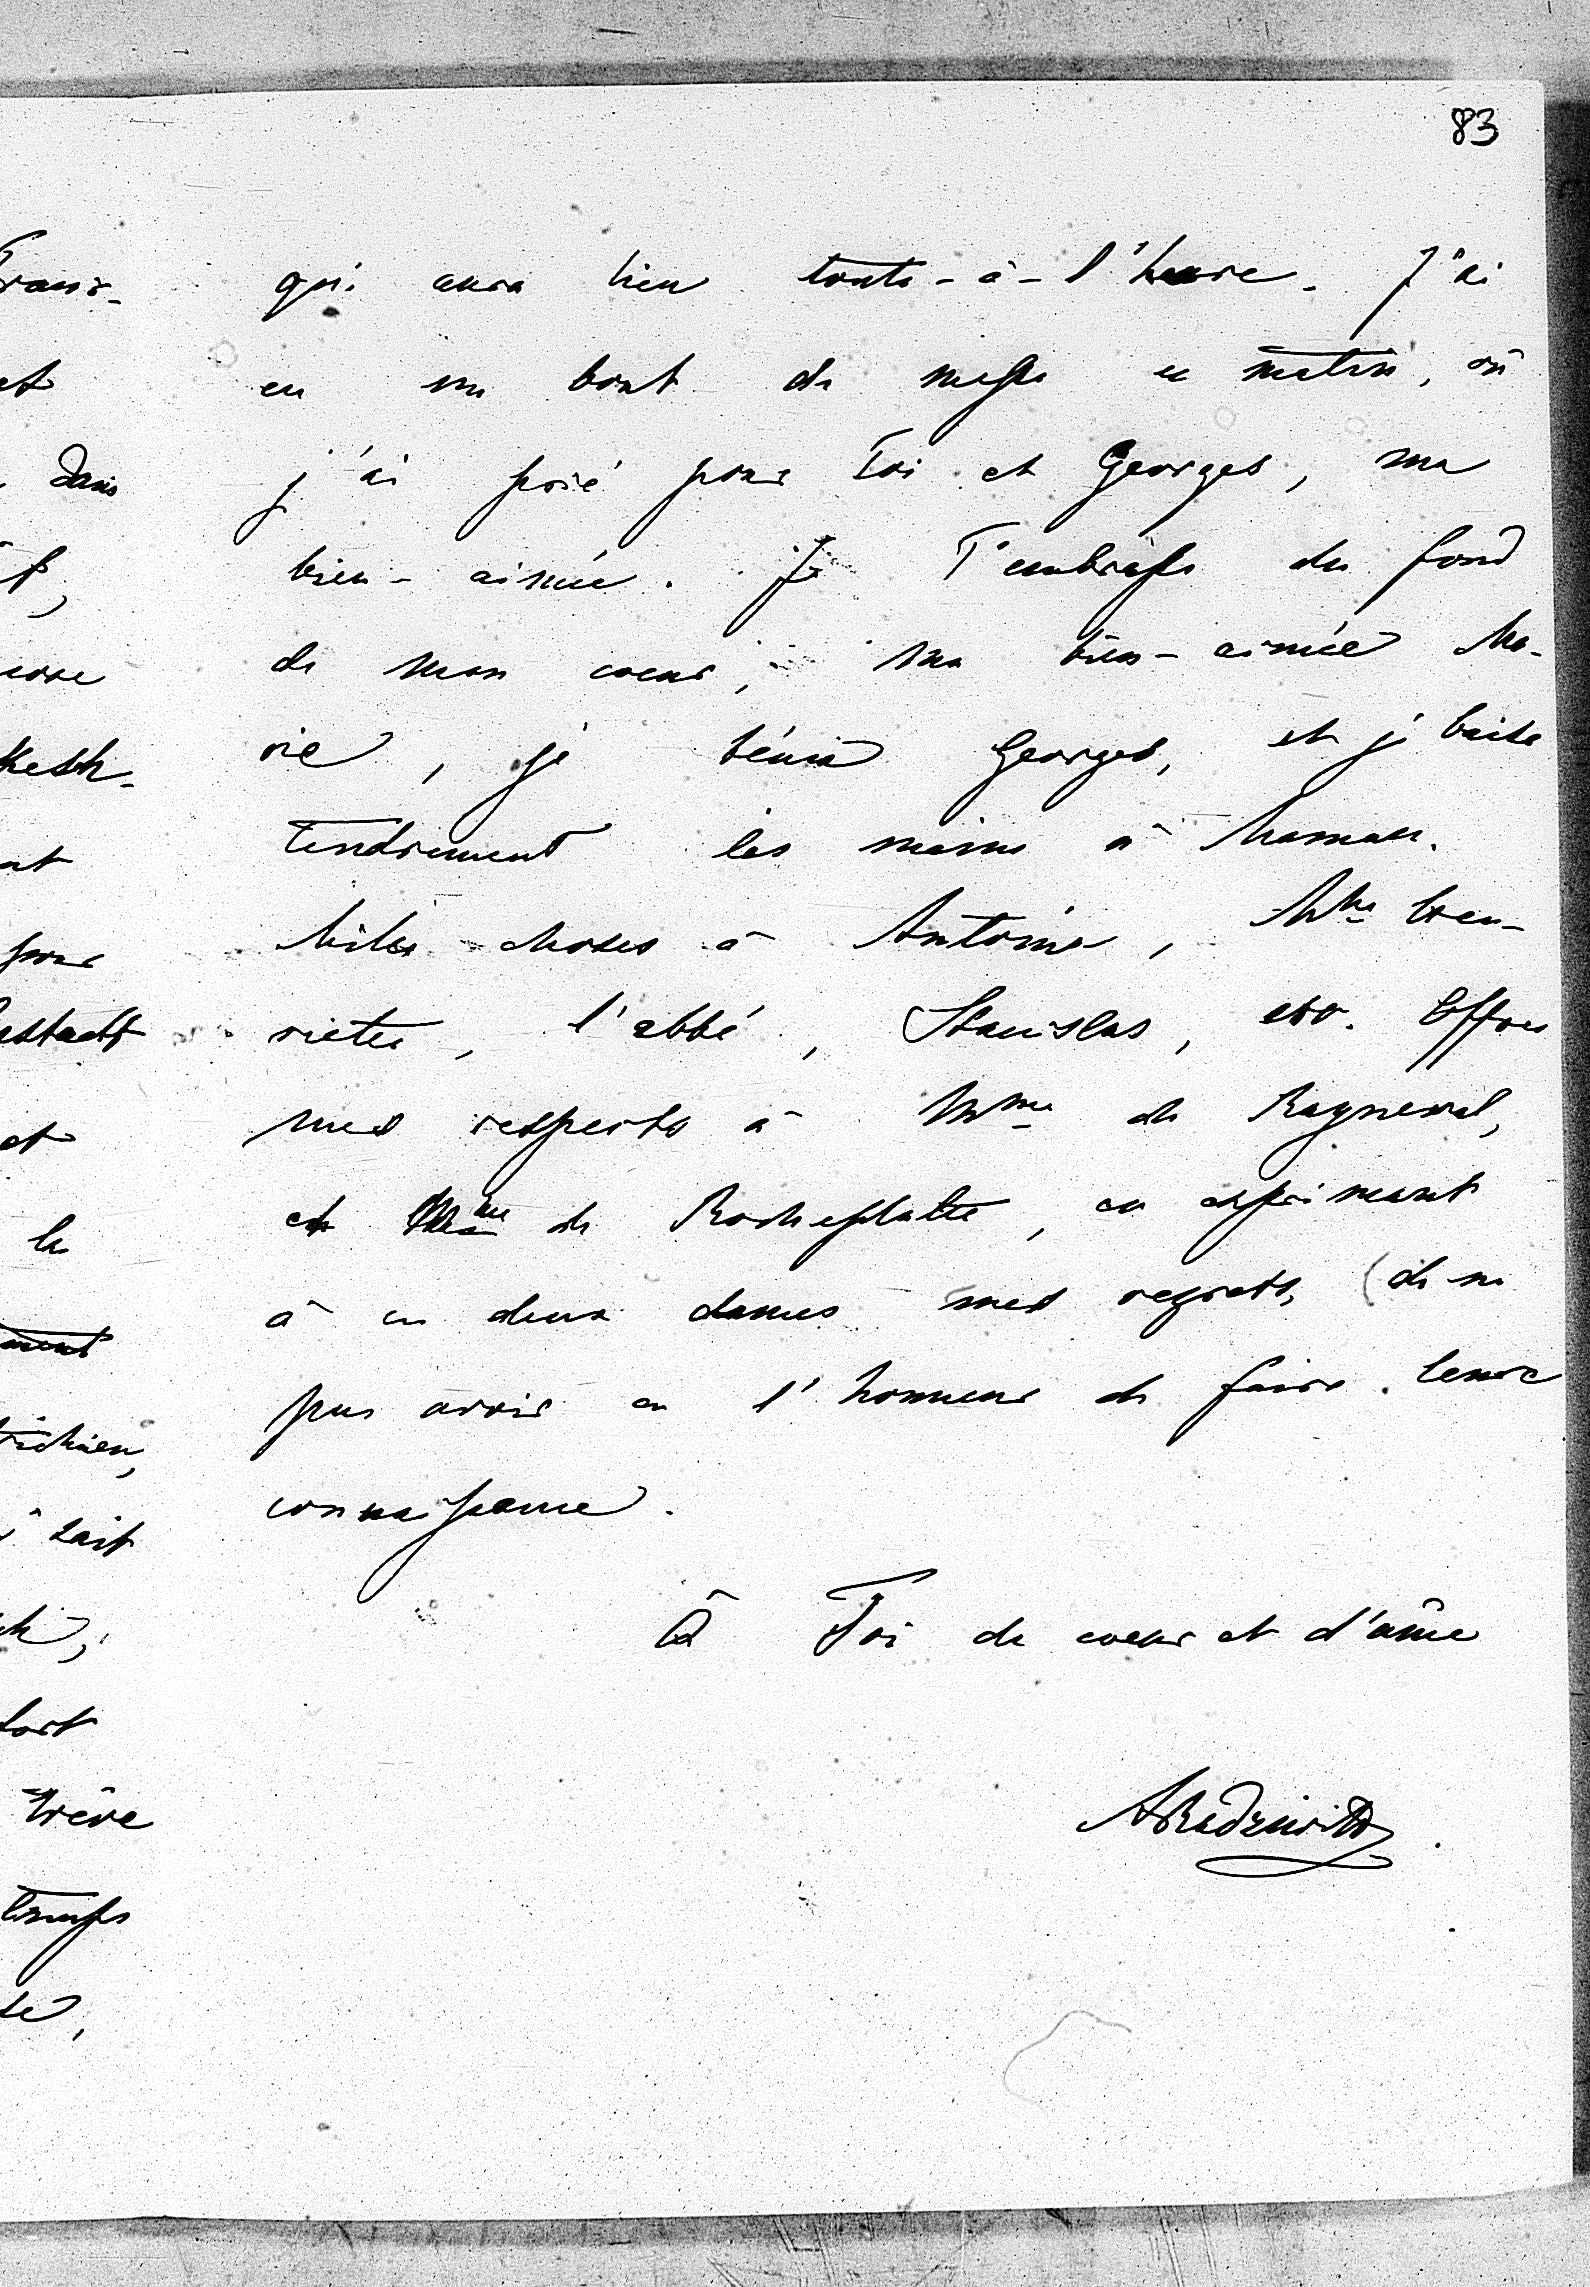 83
qui aura lieu toute-à-l'heure. J'ai
eu un bout de messe ce matin, où
j'ai prié pour Toi et Georges, ma
bien-aimée. Je T'embrasse du fond
de mon coeur, ma bien-aimée Ma-
rie, je bénis Georges, et je baise
tendrement les mains à Maman.
Milles choses à Antoine, Mme
l'abbé, Stanislas, etc. Offres
mes respects à Mme de Rayneval,
et Mme de Rocheplatte, en exprimant
à ces deux dames mes regrets, (de ne
pas avoir eu l'honneur de faire leur
connaissance.
À Toi de coeur et d'âme
ARadziwill.
Trans-
et
dans
Kesh-
nt
pour
et
le
ment
trichien,
sait
fort
trève
temps